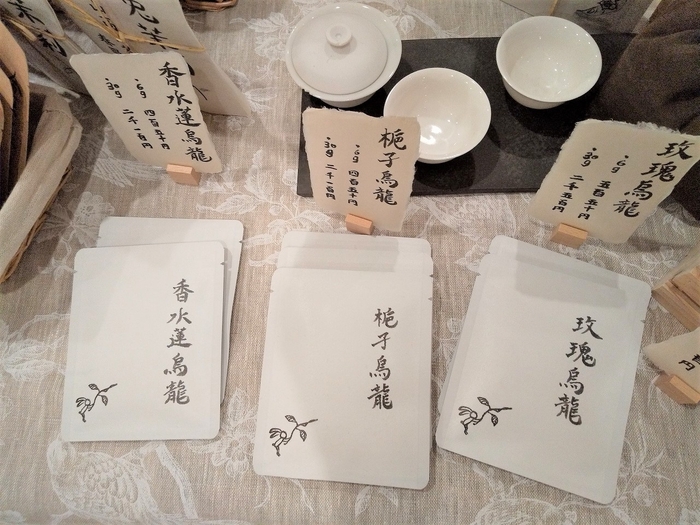 茉莉
香水蓮烏龍
・6g 四百五十円
・30g 二千一百円
梔子烏龍
・6g 四百五十円
・30g 二千一百円
玫瑰烏龍
・6g 五百五十円
・30g 二千五百円
円
香水蓮烏龍
梔子烏龍
玫瑰烏龍